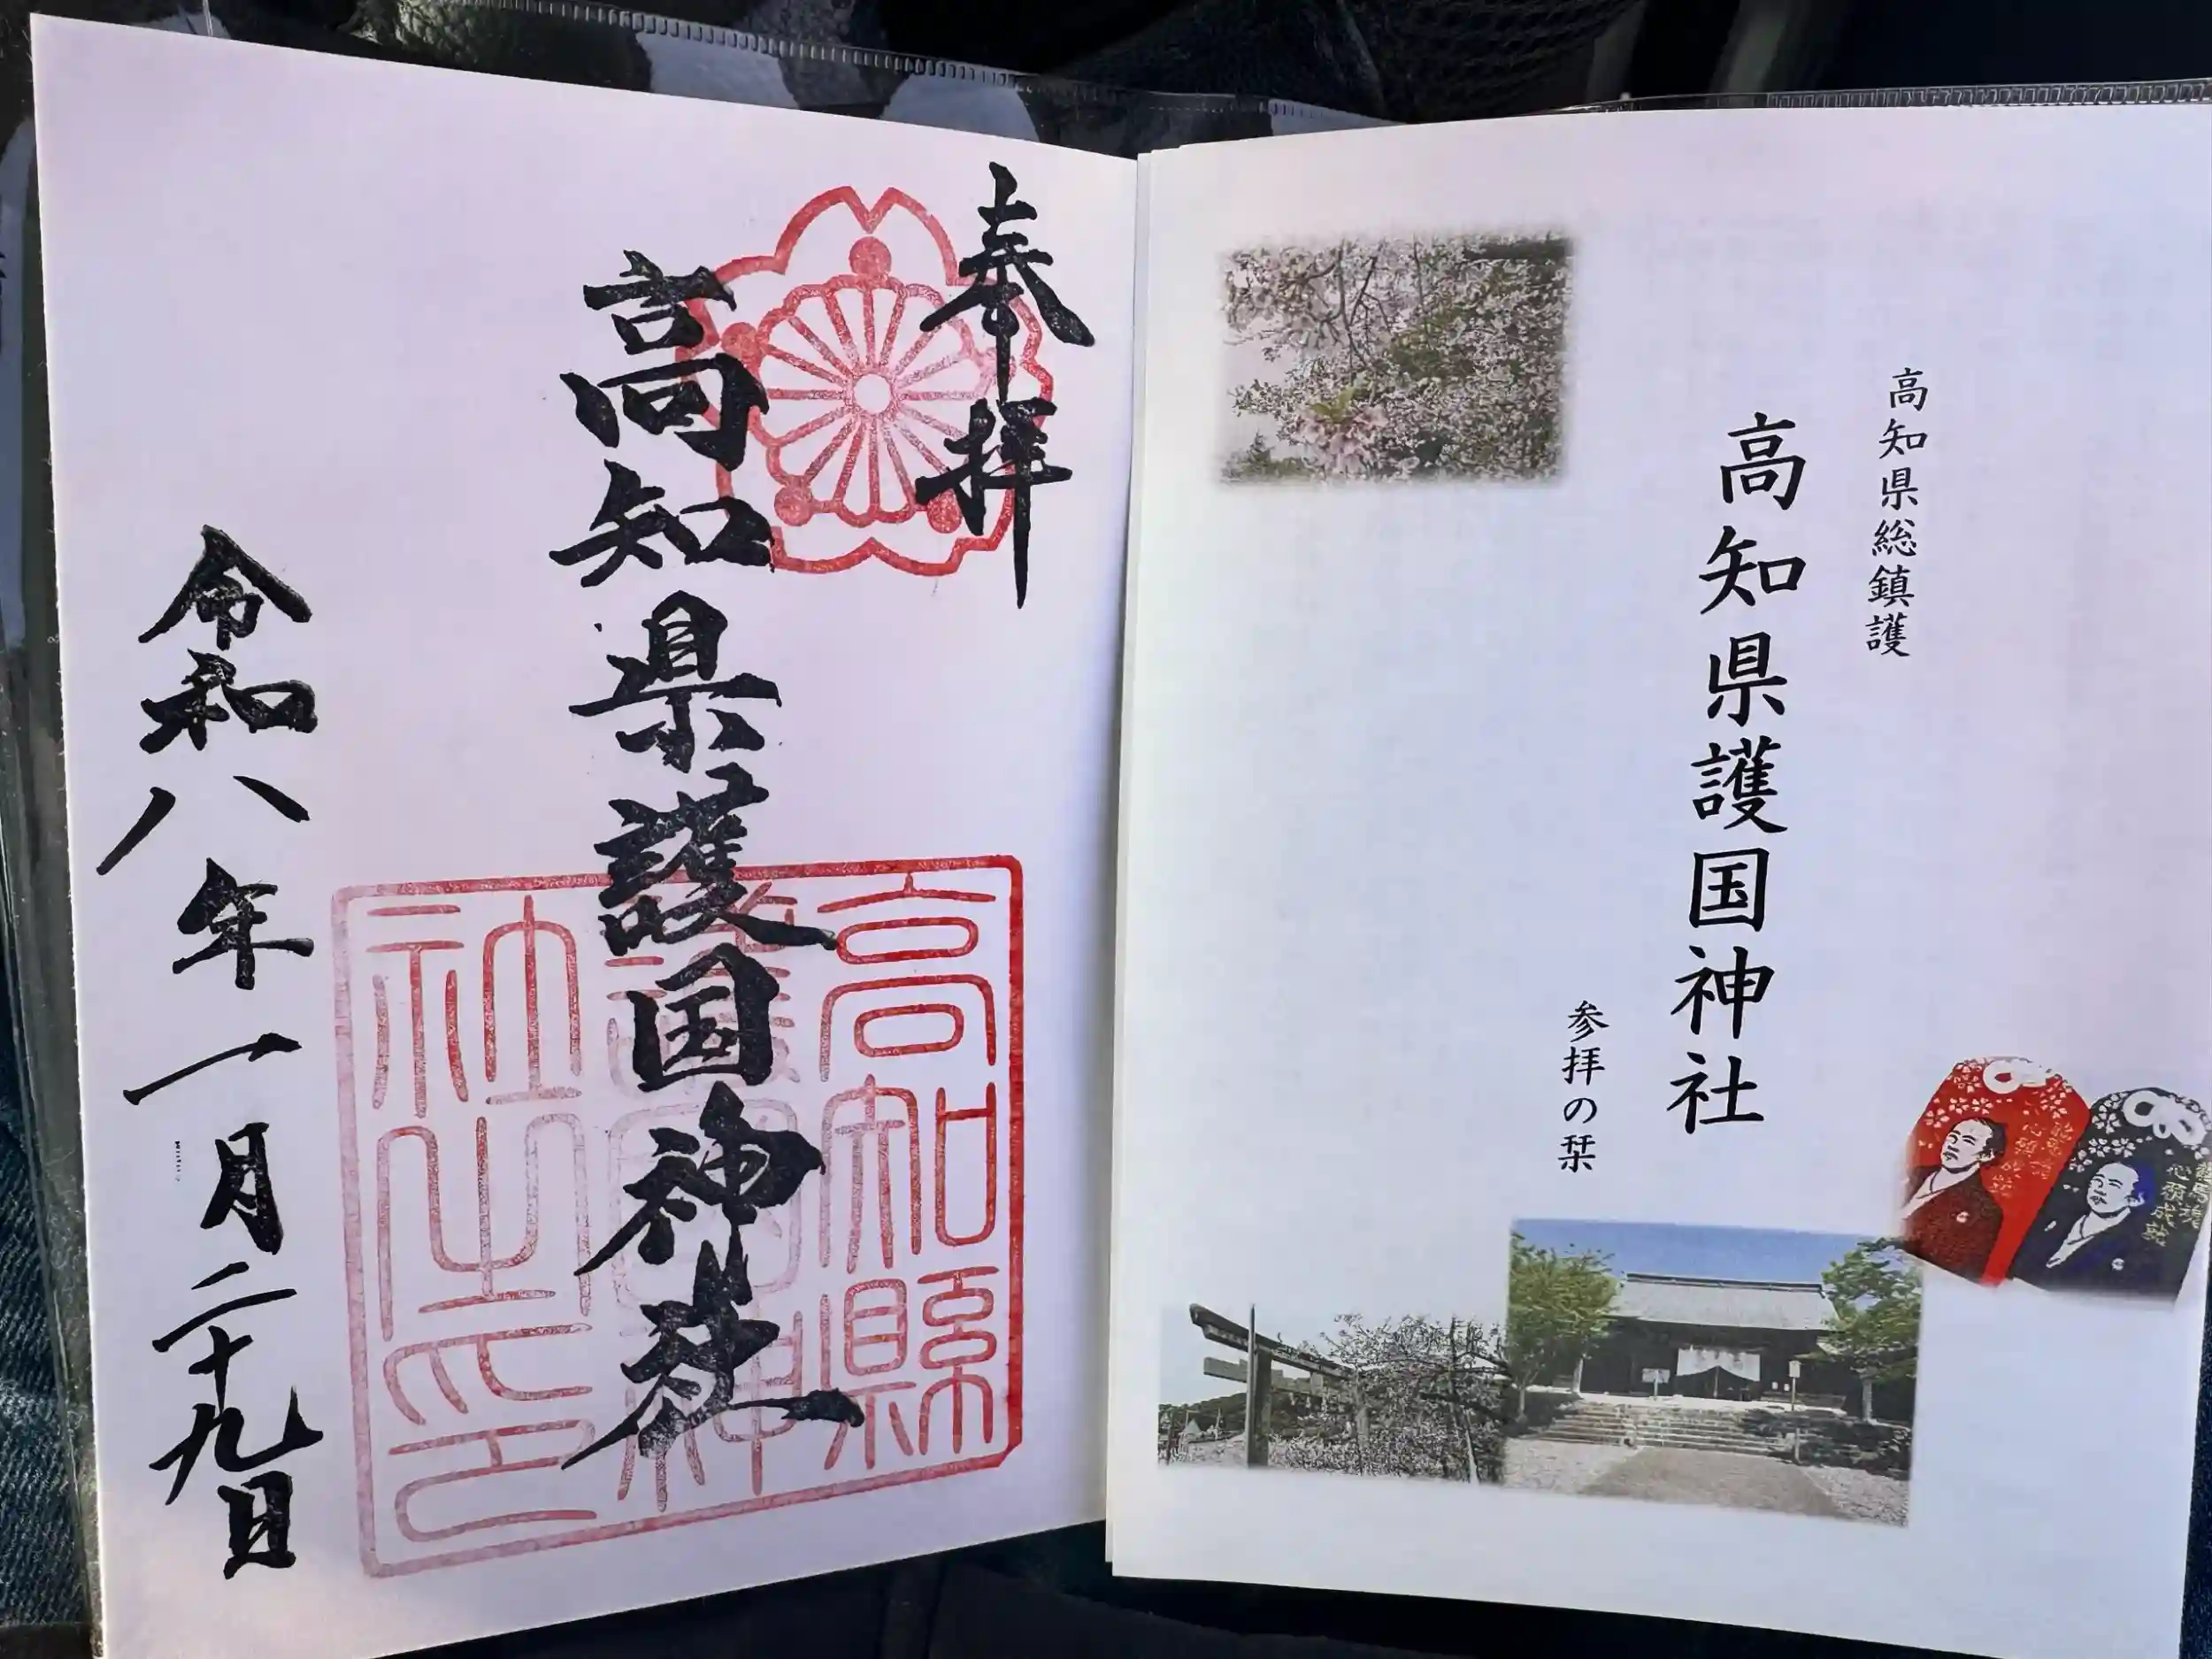 高知県総鎮護
高知県護国神社
参拝の栞
心願成就
奉拝
高知県護国神社
令和八年一月二十九日
高知縣
護国神
社之印